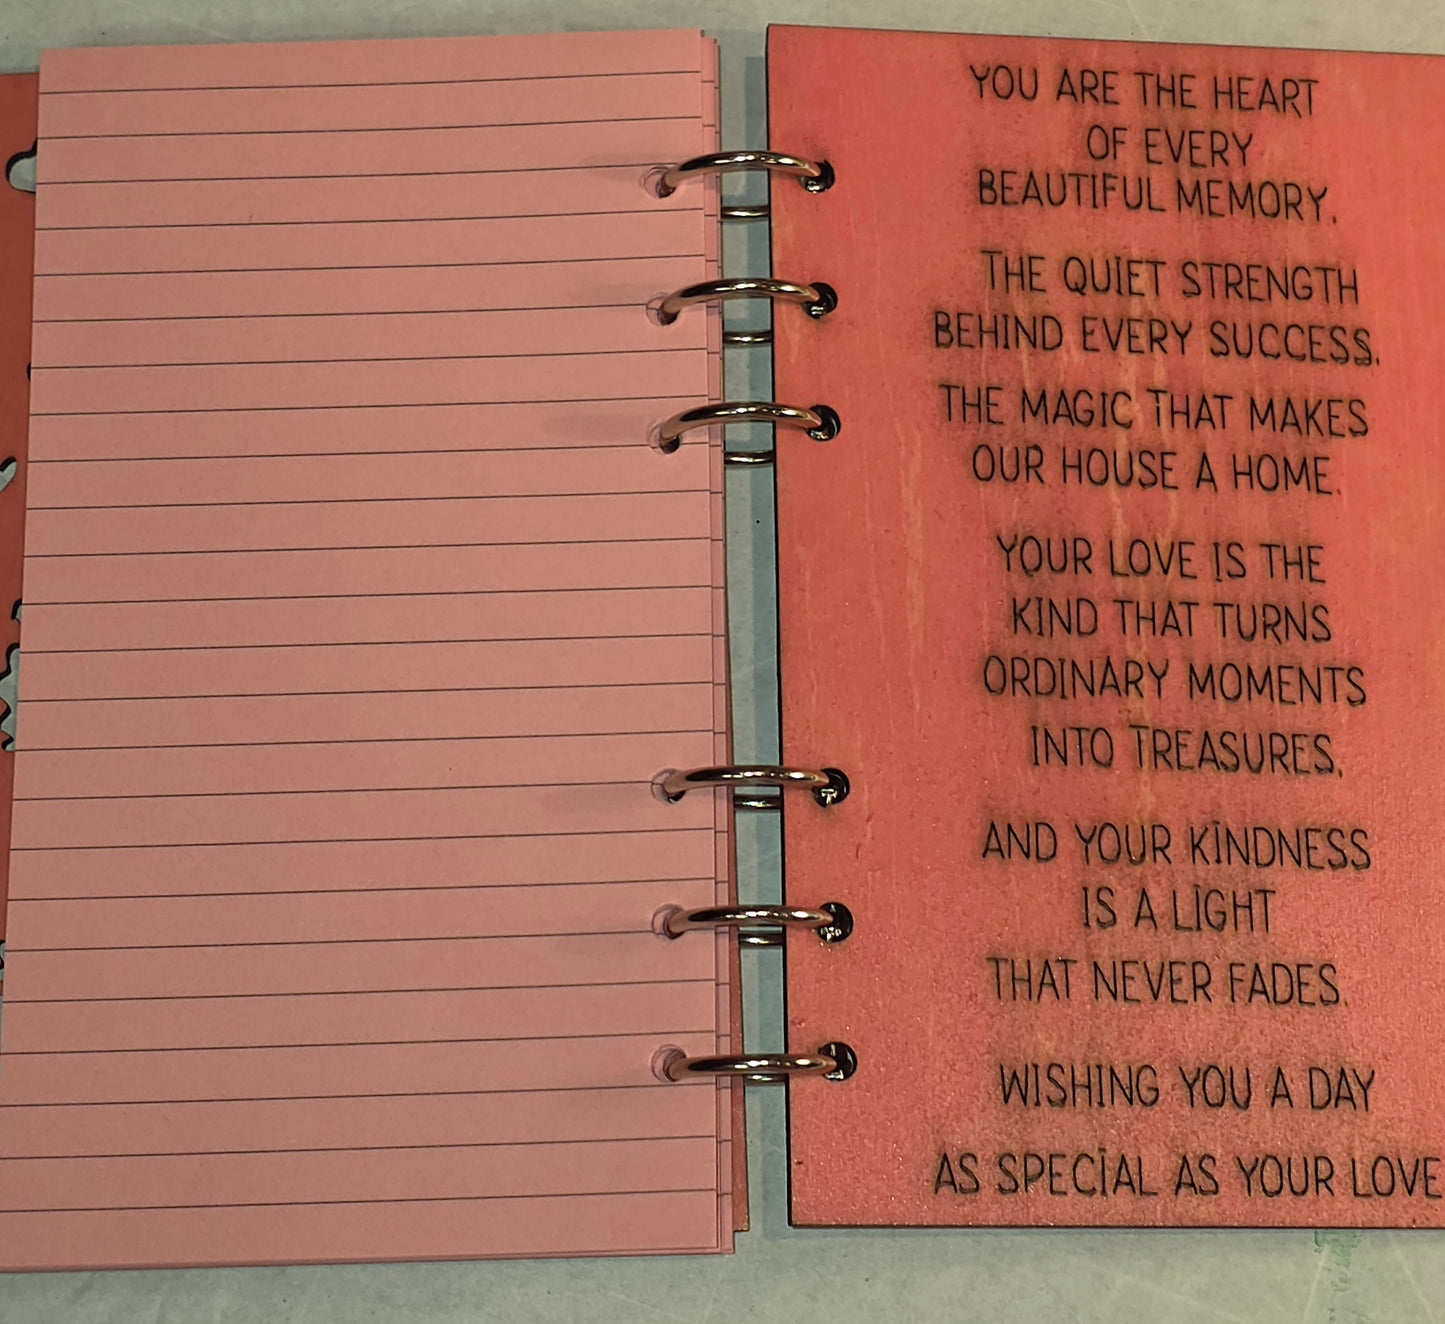 YOU ARE THE HEART
OF EVERY
BEAUTIFUL MEMORY.
THE QUIET STRENGTH
BEHIND EVERY SUCCESS.
THE MAGIC THAT MAKES
OUR HOUSE A HOME.
YOUR LOVE IS THE
KIND THAT TURNS
ORDINARY MOMENTS
INTO TREASURES,
AND YOUR KINDNESS
IS A LIGHT
THAT NEVER FADES.
WISHING YOU A DAY
AS SPECIAL AS YOUR LOVE